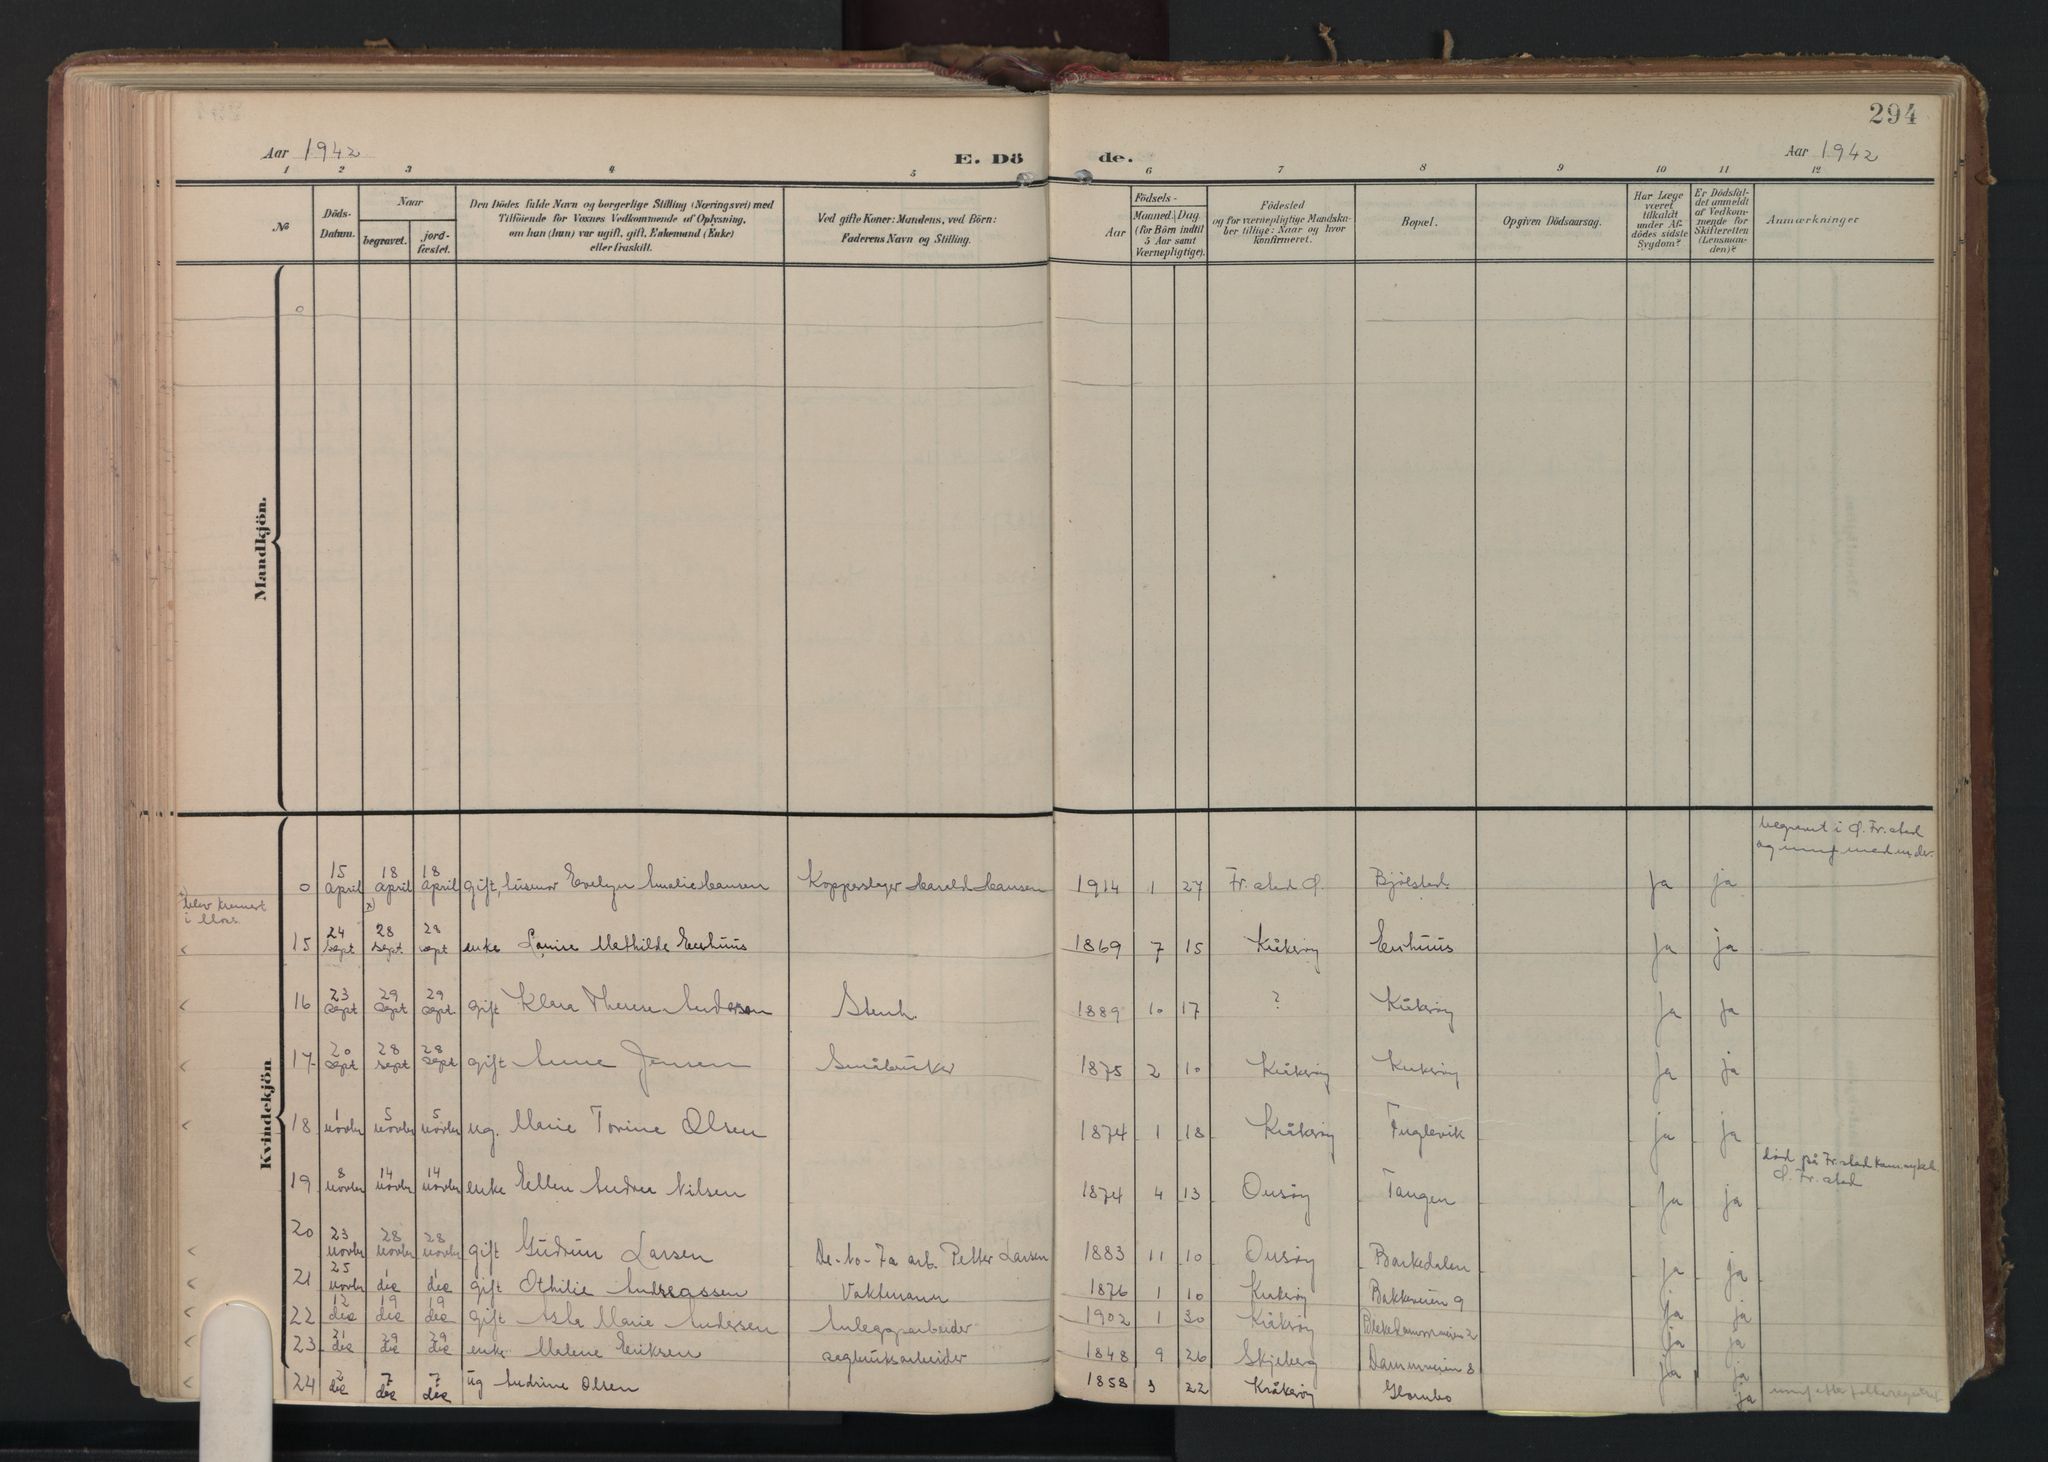 294
Aar 1942 E. Dö de. Aar 1942
1 2 3 4 5 6 7 8 9 10 11 12
No
Döds-Datum.
Naar
begravet.
jord-fæstet.
Den Dödes fulde Navn og borgerlige Stilling (Næringsvei) med
Tilföiende for Voxnes Vedkommende af Oplysning,
om han (hun) var ugift, gift, Enkemand (Enke)
eller fraskilt.
Ved gifte Koner: Mandens, ved Börn:
Faderens Navn og Stilling.
Födsels-
Aar
Maaned. Dag.
(for Börn indtil
5 Aar samt
Værnepligtige).
Födested
og for værnepligtige Mandska-
ber tillige: Naar og hvor
konfirmeret.
Bopæl.
Opgiven Dödsaarsag.
Har Læge
været
tilkaldt
under Af-
dödes sidste
Sygdom?
Er Dödsfal-
det anmeldt
af Vedkom-
mende for
Skifteretten
(Lensman-
den)?
Anmærkninger
Mandkjön.
o
Kvindekjön
begravet i Ø. Fr.stad
o 15 april 18 april 18 april gift, husmor Evelyn Amalie Hansen Kopperslager Harald Hansen 1914 1 27 Fr.stad Ø. Bjölstad. ja ja
x) blev kremert
i Moss
15 24 sept 28 sept. x) 28 sept enke Louise Mathilde Enhuus 1869 7 15 Kråkerøy Enhuus ja ja
16 23 sept 29 sept 29 sept. gift Klara Therese Andersen Stenh. 1889 10 17 ? Kråkerøy ja ja
17 20 sept 28 sept 28 sept gift Anne Jensen Småbruker 1875 2 10 Kråkerøy Kråkerøy ja ja
18 1 novbr 5 novbr 5 novbr ug. Marie Torine Olsen 1874 1 18 Kråkerøy Fuglevik ja ja
død på Fr.stad kom.sykeh.
Ø. Fr.stad
19 8 novbr 14 novbr 14 novbr enke Ellen Andrea Nilsen 1874 4 13 Onsøy Tangen ja ja
20 23 novbr 28 novbr 28 novbr gift Gudrun Larsen De-No-Fa arb. Petter Larsen 1883 11 10 Onsøy Barkedalen ja ja
21 25 novbr 1 dec 1 dec gift Othilie Andreassen Vaktmann 1876 1 10 Kråkerøy Bakkeveien 9 ja ja
22 12 dec 19 dec 19 dec gift Asta Marie Andersen Anleggsarbeider 1902 1 30 Kråkerøy ja ja
23 21 dec 29 dec 29 dec enke Malene Eriksen Sagbruksarbeider 1848 9 26 Skjeberg Dammveien 8 ja ja
24 2 dec 7 dec 7 dec ug Andrine Olsen 1858 3 22 Kråkerøy Glombo ja